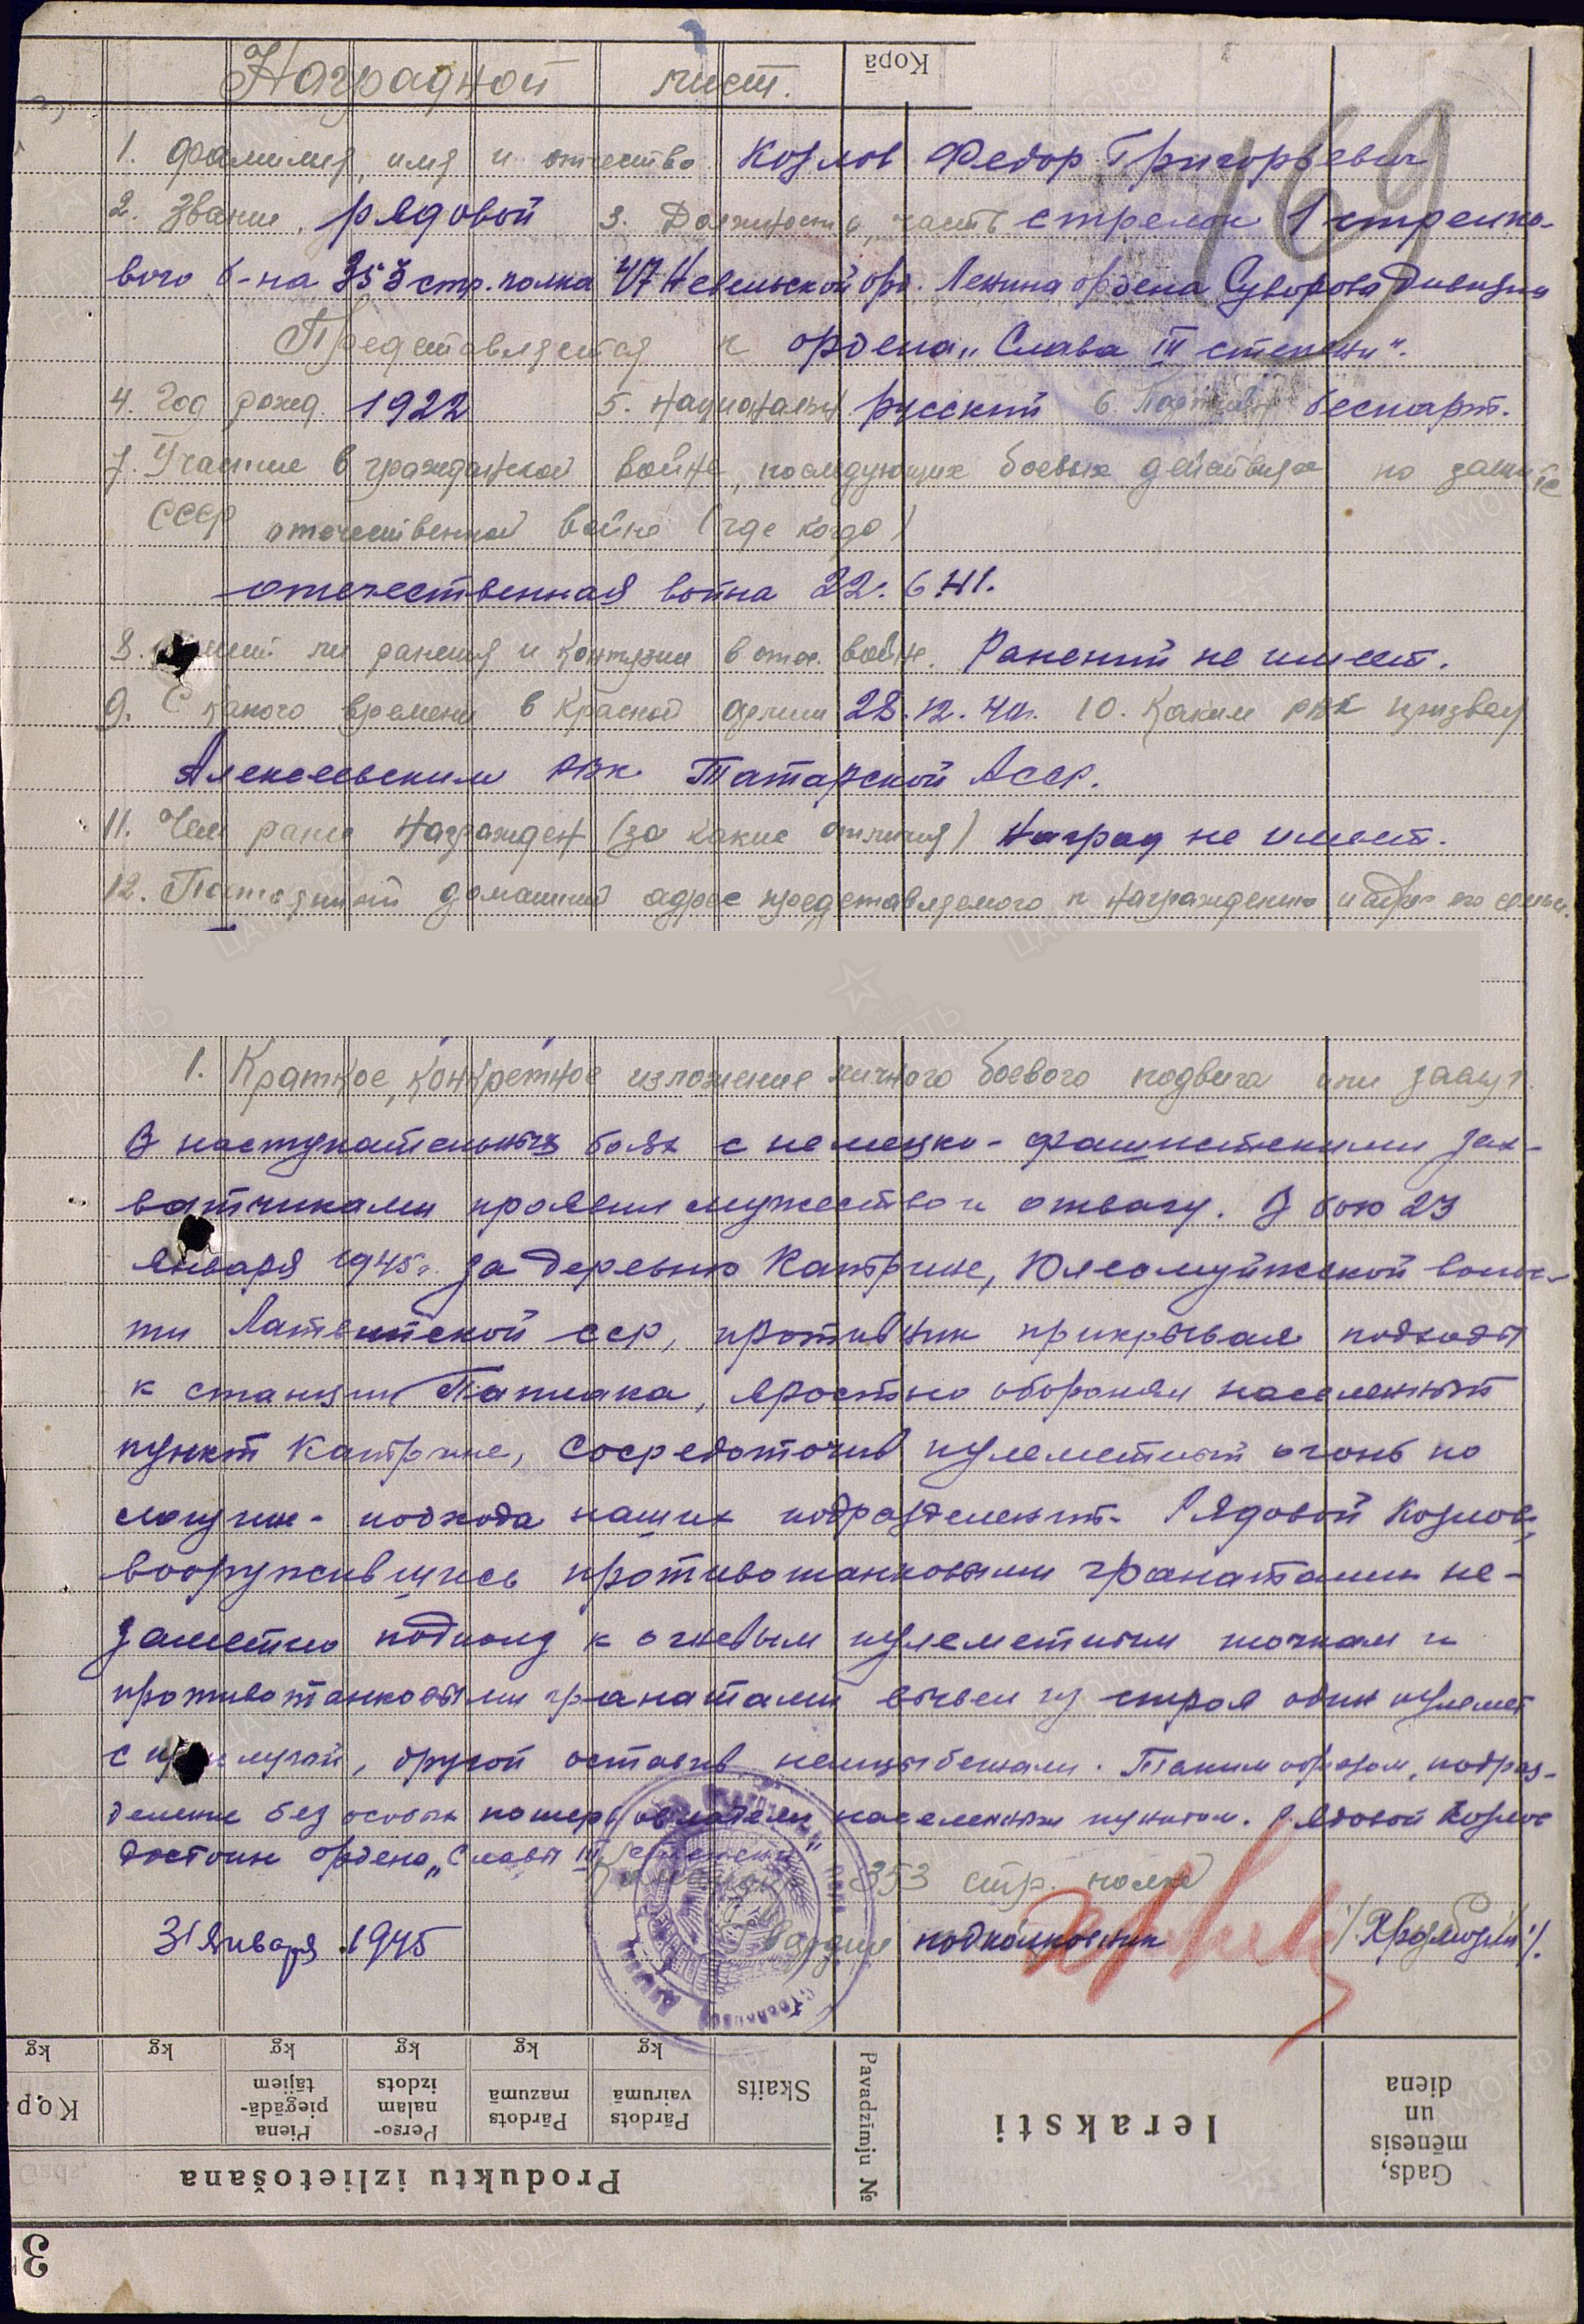 Kopā
Наградной лист.
169
1. Фамилия, имя и отчество Козлов Федор Григорьевич
2. Звание рядовой 3. Должность, часть стрелок 1 стрелко-
вого б-на 353 стр. полка 47 Невельской орд. Ленина ордена Суворова дивизии
Представляется к ордена „Слава III степени".
4. Год рожд. 1922 5. Национальн русский 6 Партийн беспарт.
7. Участие в гражданской войне, последующих боевых действиях по защите
СССР отечественной войне (где когда)
отечественная война 22. 6 41.
8. ли ранения и контузии в отеч. войне. Ранений не имеет.
9. С какого времени в Красной армии 28.12.41г. 10. Каким РВК призван
Алексеевским РВК Татарской АССР.
11. Чем ранее награжден (за какие отличия) Наград не имеет.
12. Постоянный домашний адрес представляемого к награждению и адрес его семьи.
1. Краткое, конкретное изложение личного боевого подвига или заслуг.
В наступательных боях с немецко-фашистскими зах-
ватчиками проявил мужество и отвагу. В бою 23
января 1945г. за деревню Катрине, волос-
ти Латвийской ССР, противник прикрывая подходы
к станции, яростно оборонял населенный
пункт Катрине, сосредоточив пулеметный огонь по
подхода наших подразделений. Рядовой Козлов,
вооружившись противотанковыми гранатами не-
заметно подполз к огневым пулеметным точкам и
противотанковыми гранатами вывел из строя один пулемет
с прислугой, другой оставив немцы бежали. Таким образом, подраз-
деление без особых потерь овладели населенным пунктом. Рядовой Козлов
достоин ордена „Славы III степени"
Командир 353 стр. полка
31 января 1945 гвардии подполковник
Gads,
mēnesis
un
diena
Ieraksti
Pavadzīmju №
Produktu izlietošana
Skaits
Pārdots
vairumā
Pārdots
mazumā
Perso-
nalam
izdots
Piena
piegādā-
tājiem
Kop
kg kg kg kg kg kg
3